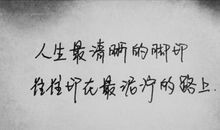 人生最清晰的脚印
往往印在最泥泞的路上.